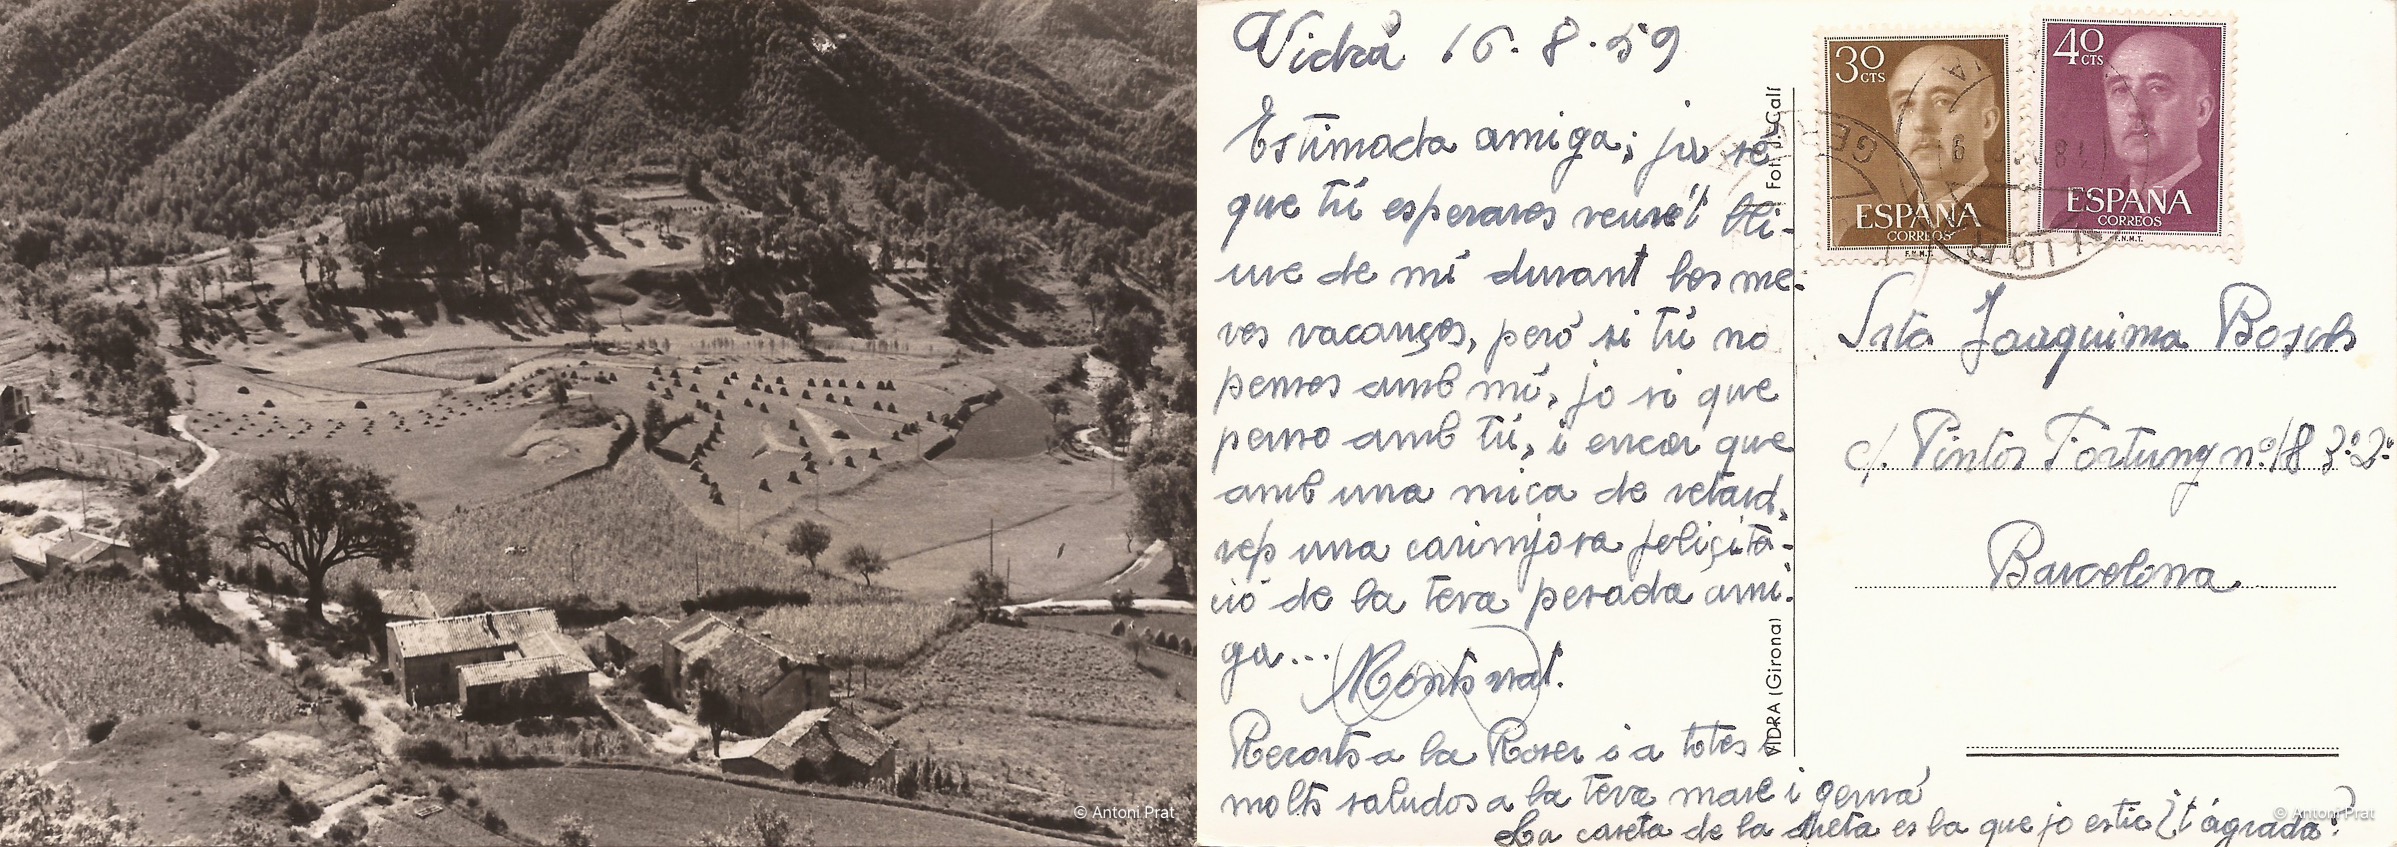 © Antoni Prat
Vidrá 16.8.59
Estimada amiga; ja sé
que tú esperaves veure't lliu-
ure de mí durant les me-
ves vacançes, peró si tú no
penses amb mí, jo si que
penso amb tú, i encar que
amb una mica de retard,
rep una carinyosa feliçita-
ció de la teva pesada ami-
ga... Montsrat.
Recorts a la Roser i a totes i
molts saludos a la teva mare i germá
La caseta de la dreta es la que jo estic ¿t'agrada?
VIDRA (Girona) Fot. J. Calí
30 CTS
ESPAÑA
CORREOS
F.N.M.T.
40 CTS
ESPAÑA
CORREOS
F.N.M.T.
Srta Joaquima Bosch
c/. Pintor Fortuny nº 18 3º 2ª
Barcelona.
© Antoni Prat